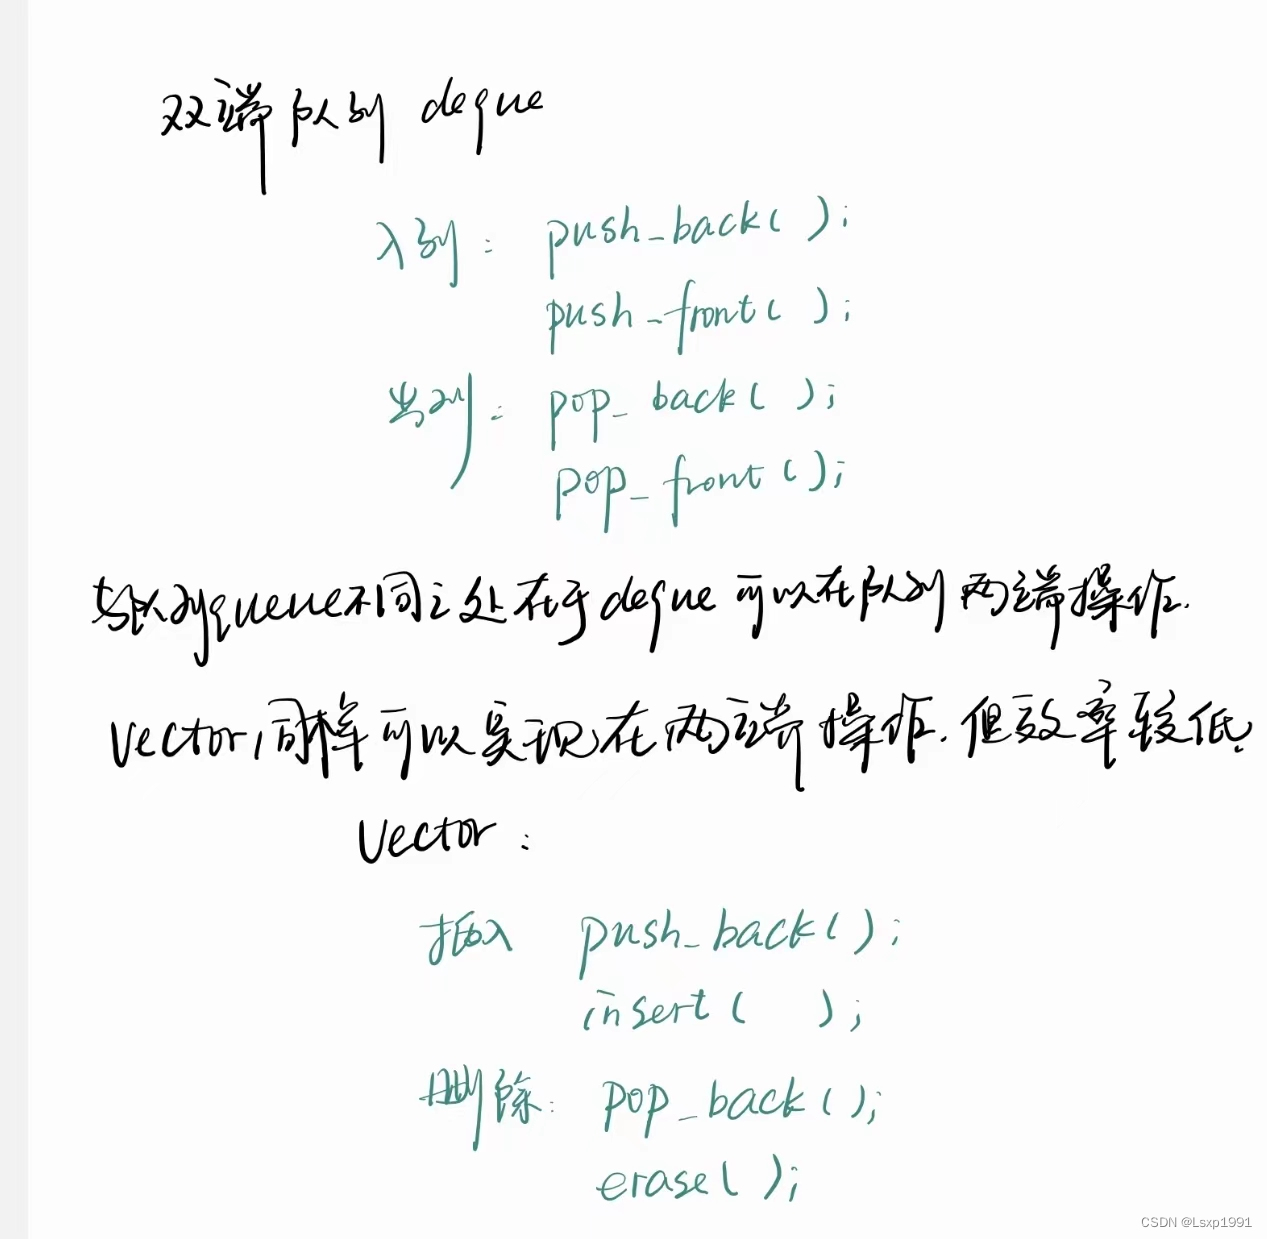 双端队列 deque
入列: push_back( );
push_front( );
出列: pop_back( );
pop_front();
与队列queue不同之处在于deque可以在队列两端操作.
Vector,同样可以实现在两端操作.但效率较低.
Vector:
插入 push_back();
insert( );
删除: pop_back();
erase();
CSDN @Lsxp1991